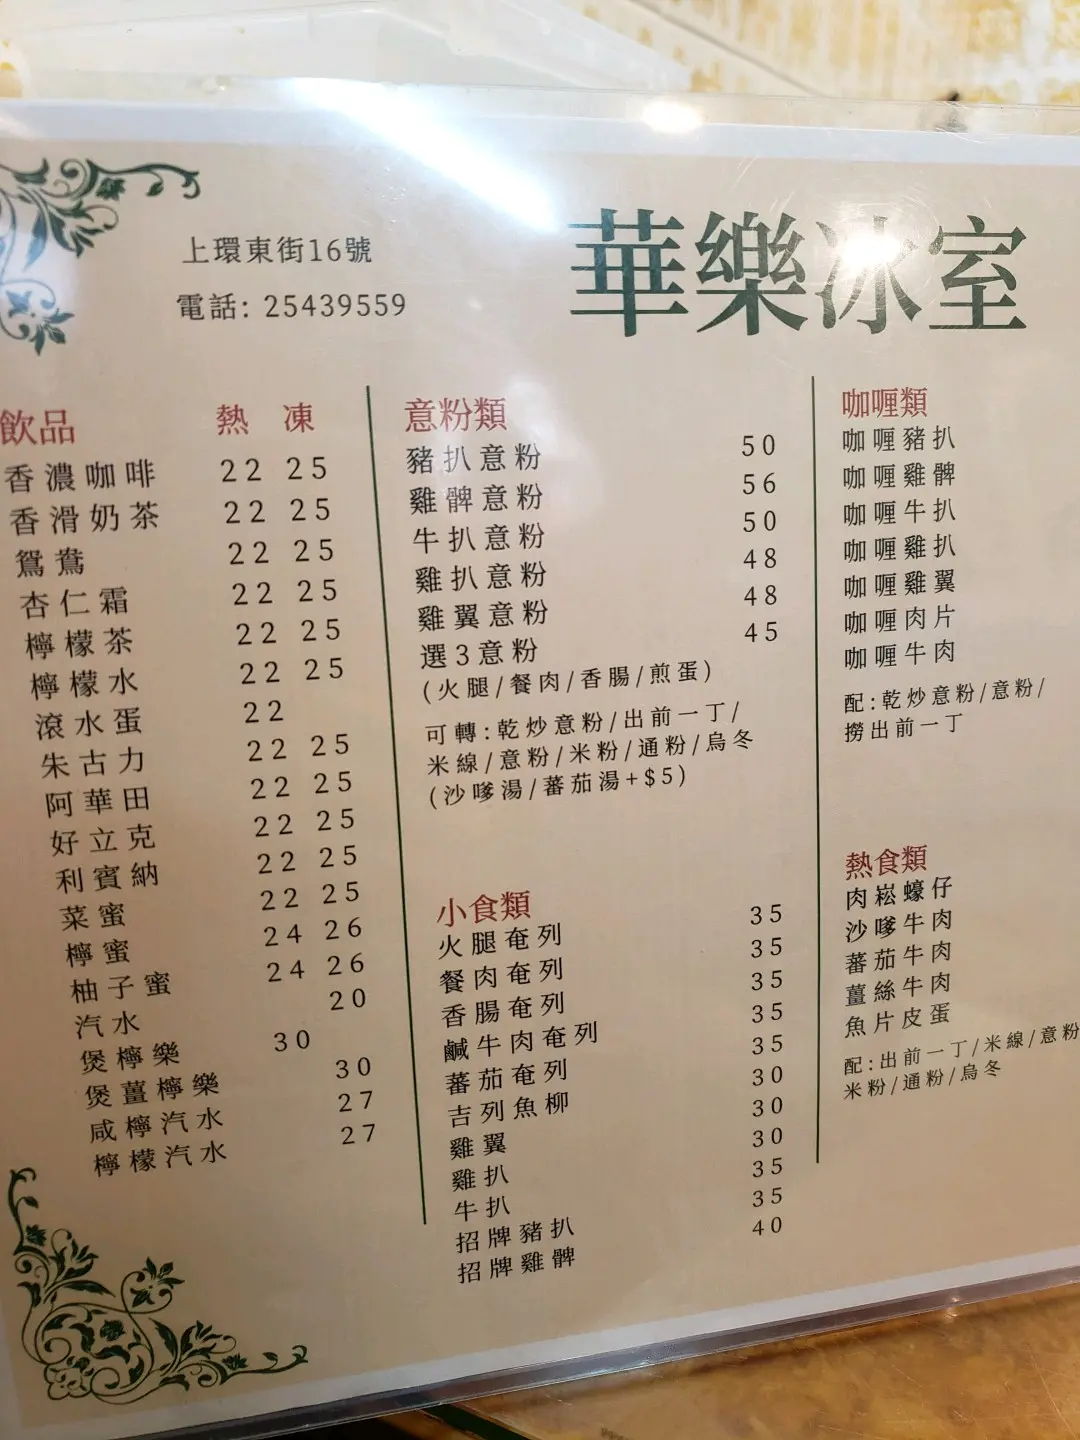 上環東街16號
電話: 25439559
華樂冰室
飲品 熱 凍
香濃咖啡 22 25
香滑奶茶 22 25
鴛鴦 22 25
杏仁霜 22 25
檸檬茶 22 25
檸檬水 22 25
滾水蛋 22
朱古力 22 25
阿華田 22 25
好立克 22 25
利賓納 22 25
菜蜜 22 25
檸蜜 24 26
柚子蜜 24 26
汽水 20
煲檸樂 30
煲薑檸樂 30
咸檸汽水 27
檸檬汽水 27
意粉類
豬扒意粉 50
雞髀意粉 56
牛扒意粉 50
雞扒意粉 48
雞翼意粉 48
選3意粉 45
(火腿/餐肉/香腸/煎蛋)
可轉:乾炒意粉/出前一丁/
米線/意粉/米粉/通粉/烏冬
(沙嗲湯/蕃茄湯+$5)
小食類
火腿奄列 35
餐肉奄列 35
香腸奄列 35
鹹牛肉奄列 35
蕃茄奄列 35
吉列魚柳 30
雞翼 30
雞扒 30
牛扒 35
招牌豬扒 35
招牌雞髀 40
咖喱類
咖喱豬扒
咖喱雞髀
咖喱牛扒
咖喱雞扒
咖喱雞翼
咖喱肉片
咖喱牛肉
配:乾炒意粉/意粉/
撈出前一丁
熱食類
肉崧蠔仔
沙嗲牛肉
蕃茄牛肉
薑絲牛肉
魚片皮蛋
配:出前一丁/米線/意粉
米粉/通粉/烏冬